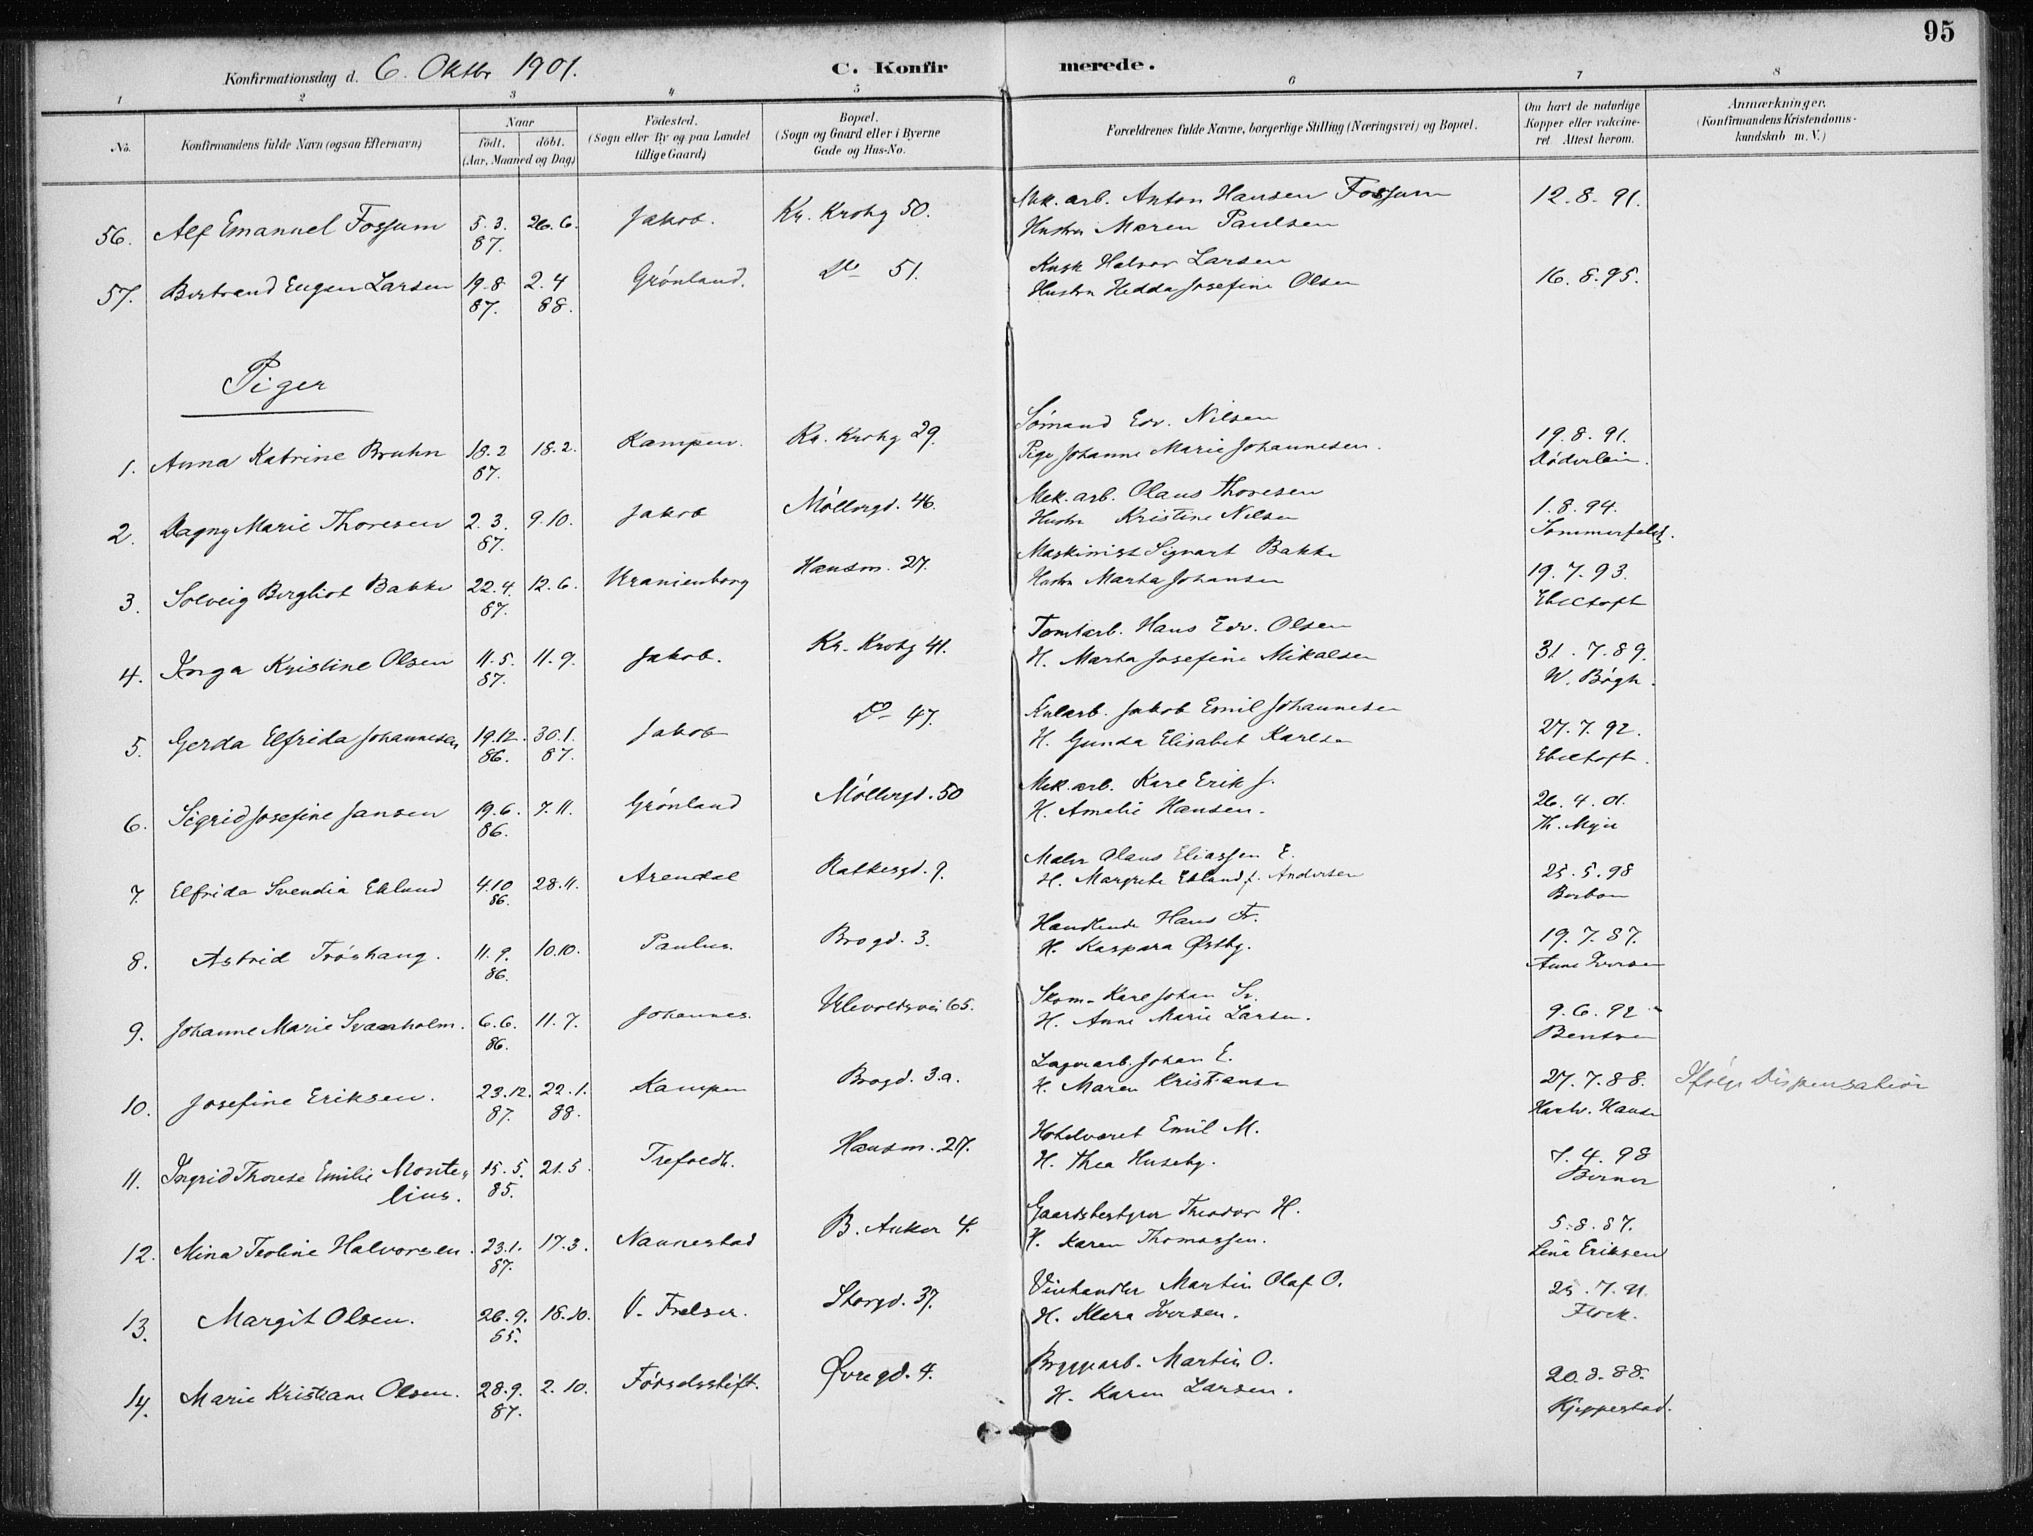 95
Konfirmationsdag d. 6. Oktbr 1901.
C. Konfirmerede.
1 2 3 4 5 6 7 8
No. Konfirmandens fulde Navn (ogsaa Efternavn) Naar født. døbt. (Aar, Maaned og Dag) Fødested. (Sogn eller By og paa Landet tillige Gaard) Bopæl. (Sogn og Gaard eller i Byerne Gade og Hus-No. Forældrenes fulde Navne, borgerlige Stilling (Næringsvei) og Bopæl. Om havt de naturlige Kopper eller vakcineret. Attest herom. Anmærkninger. (Konfirmandens Kristendomskundskab m. V.)
56. Alf Emanuel Fossum 5.3. 87. 26.6. Jakob. Kr. Krohg 50. Mek. arb. Anton Hansen Fossum
Hustru Maren Paulsen 12.8.91.
57. Bertrand Eugen Larsen 19.8 87. 2.4 88. Grønland. Do 51. Kusk Halvor Larsen
Hustru Hedda Josefine Olsen 16.8.95.
Piger
1. Anna Katrine Bruhn 18.2 87. 18.2. Kampen. Kr. Krohg 29. Sømand Edv. Nilsen
Pige Johanne Marie Johannesen. 19.8.91. Døderlein.
2. Dagny Marie Thoresen 2.3. 87. 9.10. Jakob Møllergd. 46. Mek. arb. Olaus Thoresen
Hustru Kristine Nilsen 1.8.94. Sommerfeldt.
3. Solveig Bergliot Bakke 22.4. 87. 12.6. Uranienborg Hausm. 27. Maskinist Sigvart Bakke
Hustru Marta Johansen 19.7.93. Ebeltoft
4. Inga Kristine Olsen 11.5. 87. 11.9. Jakob. Kr. Krohg 41. Tomtarb. Hans Edv. Olsen
H. Marta Josefine Mikalsen 31.7.89. W. Bøgh.
5. Gerda Elfrida Johannesen 19.12. 86. 30.1. 87. Jakob Do 47. Kularb. Jakob Emil Johannesen
H. Gunda Elisabet Karlsen 27.7.92. Ebeltoft.
6. Sigrid Josefine Jansen 19.6. 86. 7.11. Grønland Møllergd. 50 Mek. arb. Karl Erik J.
H. Amalie Hansen. 26.4.01. Th.
7. Elfrida Svendia Eklund 4.10 86. 28.11. Arendal Ratkesgd. 9. Maler Olaus Eliassen E.
H. Margrete Eklund f. Andersen 25.5.98
8. Astrid Trøshaug. 11.9. 86. 10.10. Paulus. Brogd. 3. Handlende Hans Tr.
H. Kaspara Østby. 19.7.87. Anne Iversen
9. Johanne Marie Svanholm. 6.6. 86. 11.7. Johannes. Ullevoldsvei 65. Skom. Karl Johan Sv.
H. Anne Marie Larsen. 9.6.92 Bentsen
10. Josefine Eriksen. 23.12. 87. 22.1. 88. Kampen Brogd. 3.a. Lagerarb. Johan E.
H. Maren Kristiansen 27.7.88. Hansen Ifølge Dispensation
11. Ingrid Therese Emilie Montelius. 15.5. 85. 21.5. Trefoldh. Hausm. 27. Hotelvært Emil M.
H. Thea Huseby. 7.4.98 Berner
12. Mina Teoline Halvorsen. 23.1. 87. 17.3. Nannestad B. Anker 4. Gaardsbestyrer Theodor H.
H. Karen Thomassen. 5.8.87. Lena Eriksen
13. Margit Olsen. 26.9. 85. 18.10. V. Frelser. Storgd. 37. Vinhandler Martin Olaf O.
H. Klara Iversen. 25.7.91. Flock.
14. Marie Kristiane Olsen. 28.9. 87. 2.10. Fødselsstift. Øvregd. 4. Bryggarb. Martin O.
H. Karen Larsen. 20.8.88. Kjeppestad.